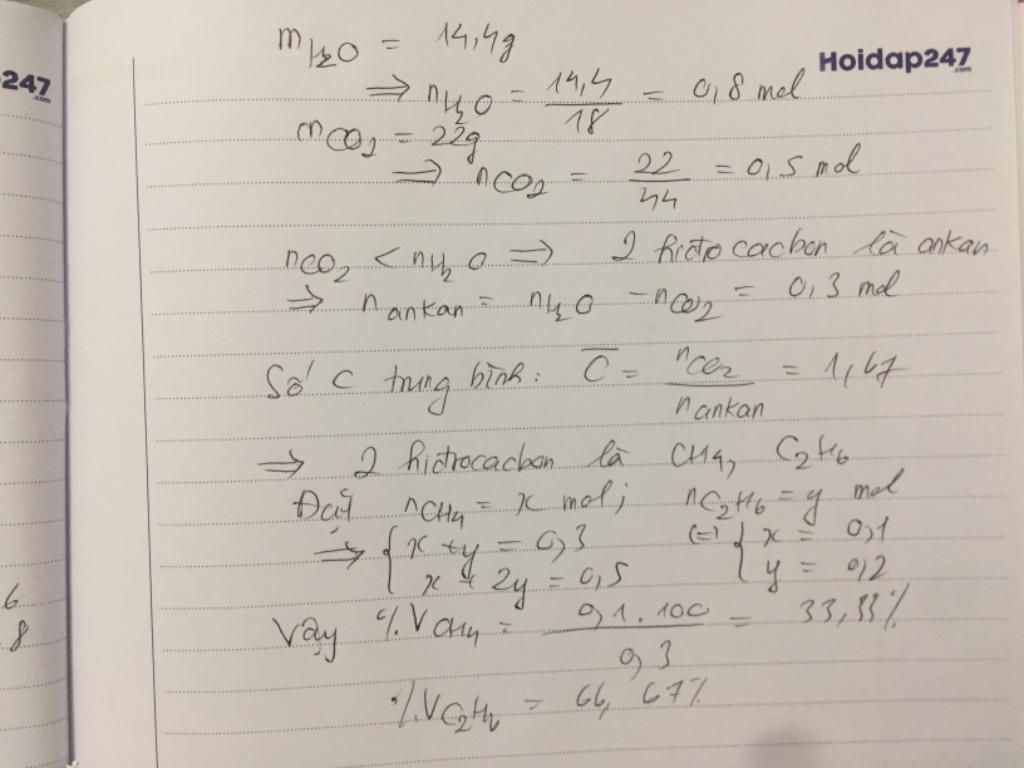 247
.com
6
8
Hoidap247
.com
mH2O = 14,4g
=> nH2O = 14,4/18 = 0,8 mol
mCO2 = 22g
=> nCO2 = 22/44 = 0,5 mol
nCO2 < nH2O => 2 hiđrocacbon là ankan
=> nankan = nH2O - nCO2 = 0,3 mol
Số C trung bình: C̅ = nCO2/nankan = 1,67
=> 2 hiđrocacbon là CH4, C2H6
Đặt nCH4 = x mol; nC2H6 = y mol
=> { x + y = 0,3 (=) { x = 0,1
x + 2y = 0,5 y = 0,2
Vậy %VCH4 = 0,1.100/0,3 = 33,33%
%VC2H6 = 66,67%